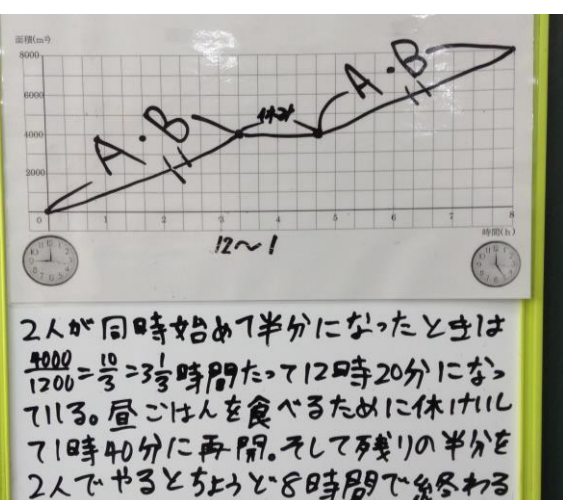 面積(m²)
8000
6000
4000
2000
A・B
休み
A・B
0 1 2 3 4 5 6 7 8
時間(h)
12〜1
2人が同時始めて半分になったときは
4000/1200=10/3=3 1/3時間たって12時20分になっ
ている。昼ごはんを食べるために休けいし
て1時40分に再開。そして残りの半分を
2人でやるとちょうど8時間で終わる